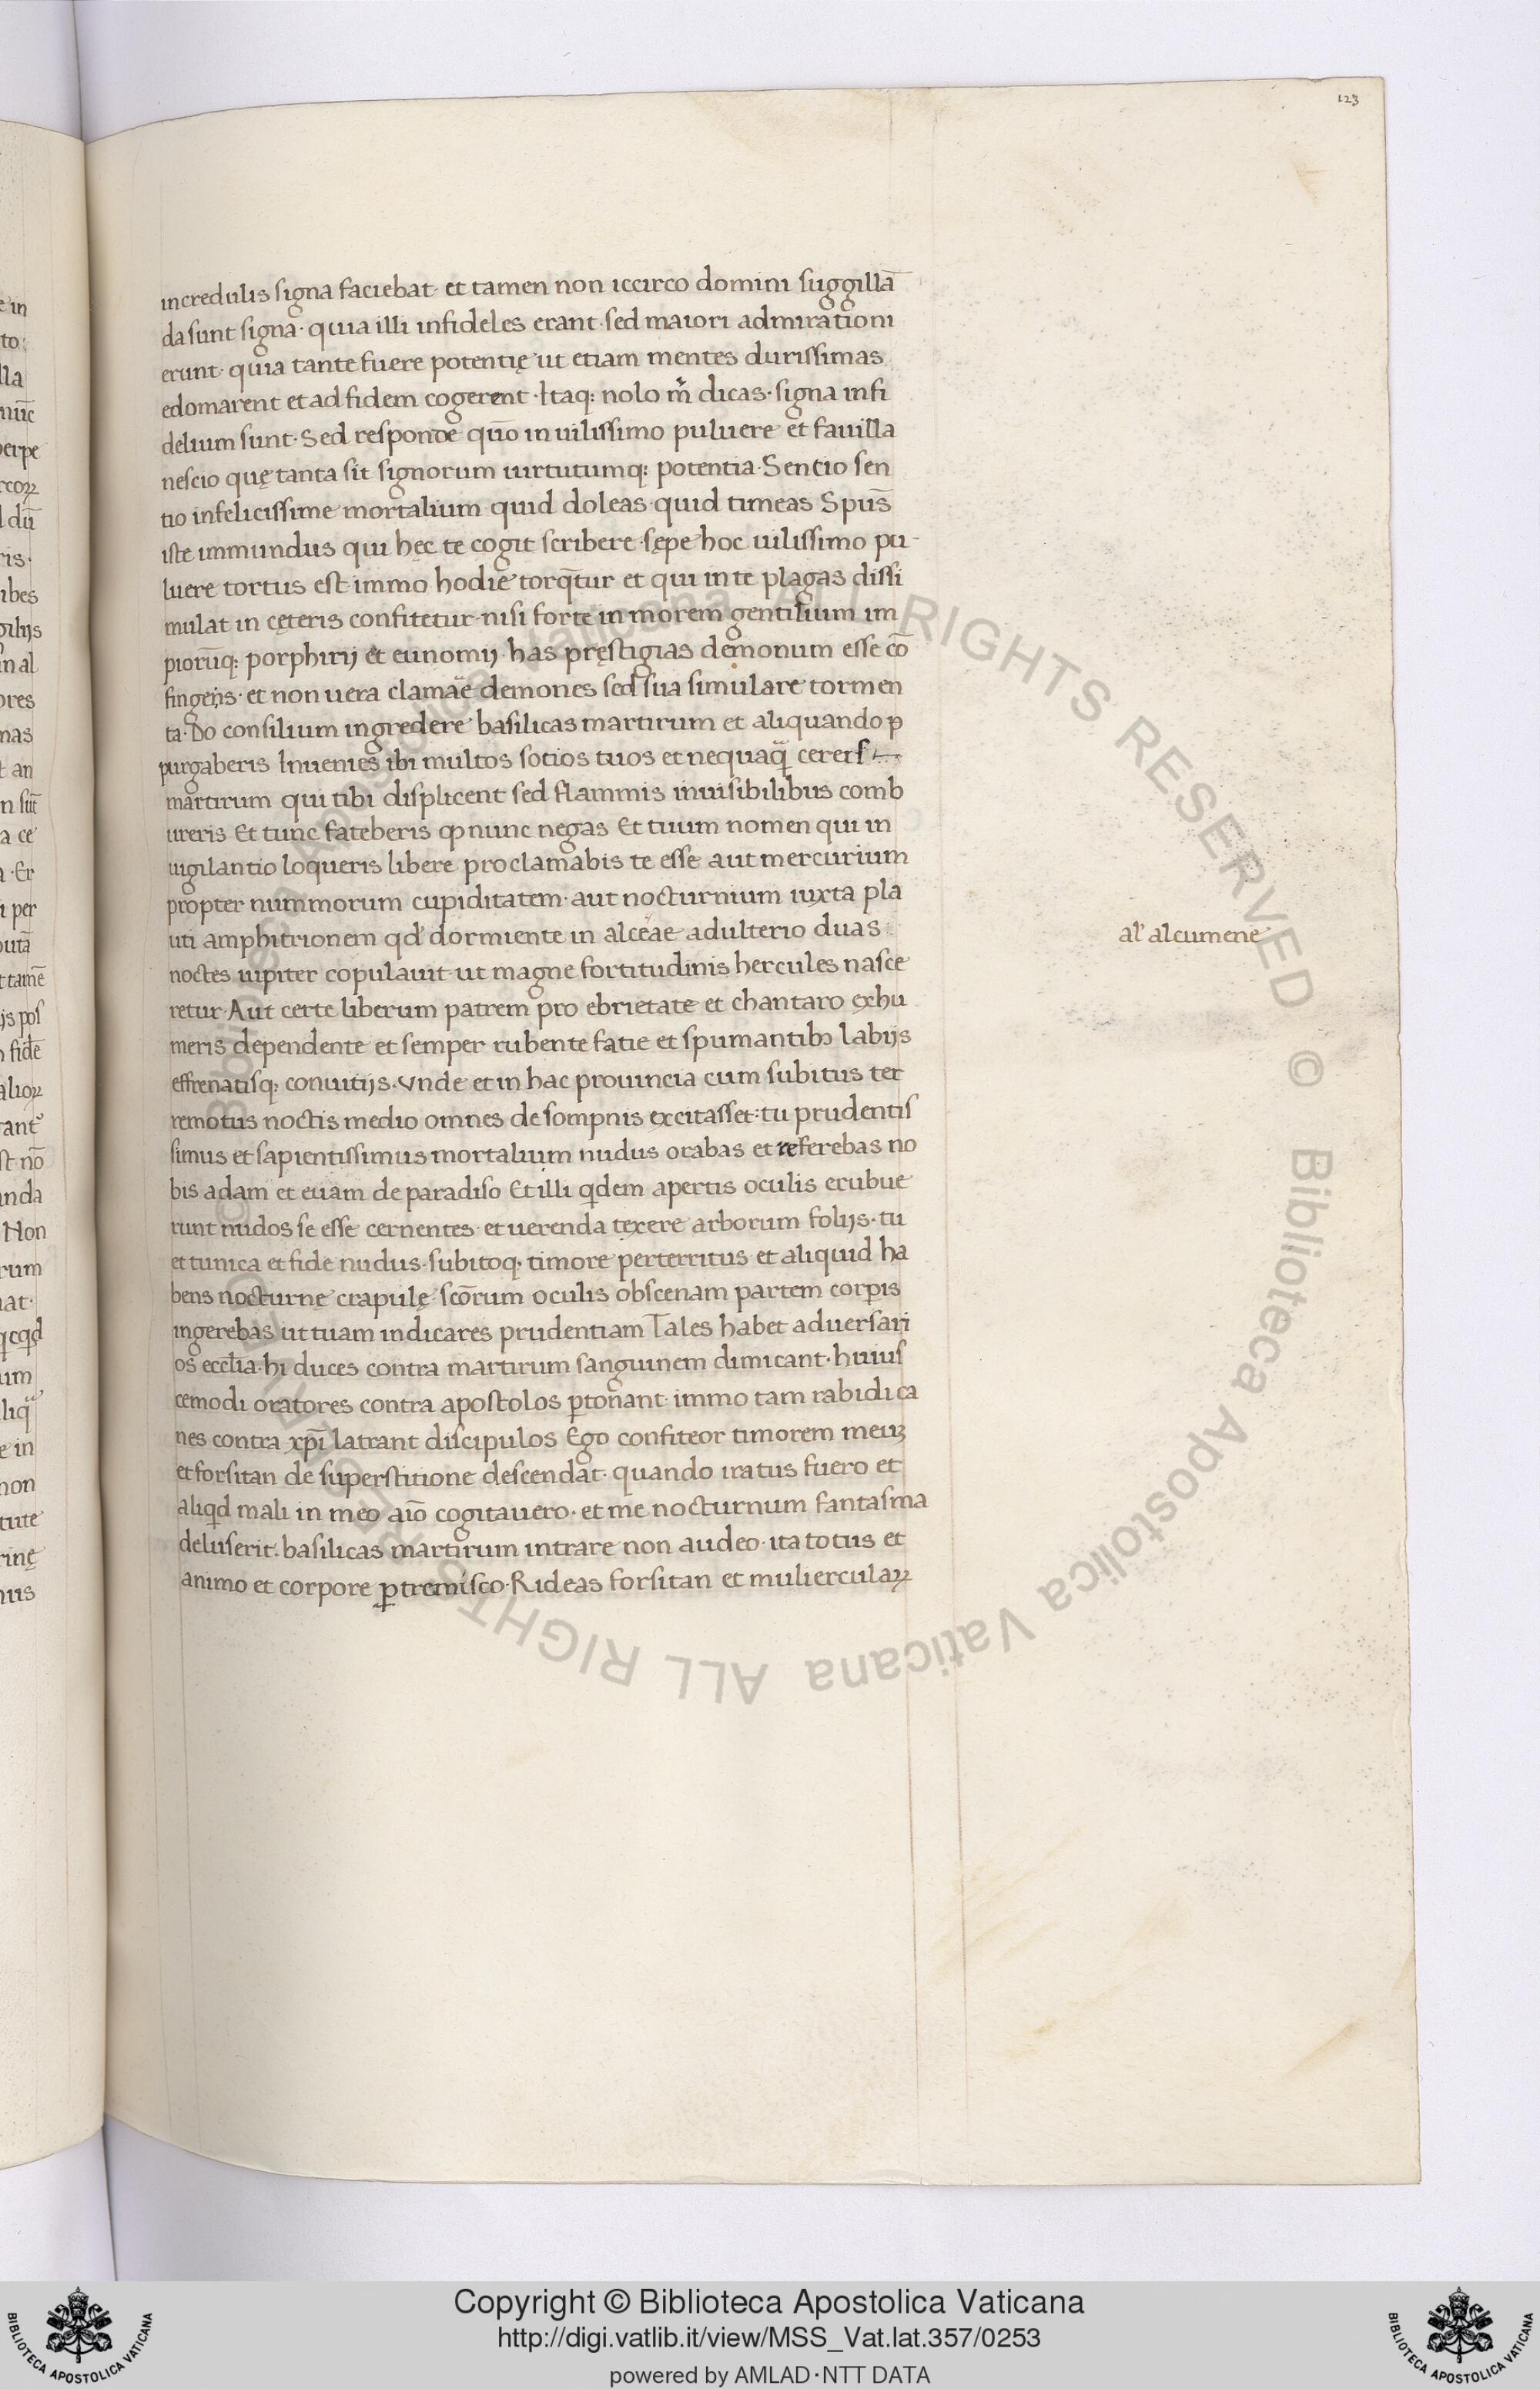 123
incredulis signa faciebat· et tamen non iccirco domini suggillā
da sunt signa· quia illi infideles erant· sed maiori admirationi
erunt· quia tante fuere potentię ut etiam mentes durissimas
edomarent et ad fidem cogerent· Itaq; nolo m̄ dicas· signa infi
delium sunt· Sed responde quō in uilissimo puluere et fauilla
nescio quę tanta sit signorum uirtutumq; potentia· Sentio sen
tio infelicissime mortalium quid doleas· quid timeas Spūs
iste immundus qui hęc te cogit scribere· sępe hoc uilissimo pu-
luere tortus est immo hodie torq̄tur et qui in te plagas dissi
mulat in cęteris confitetur· nisi forte in morem gentilium im
piorūq; porphirij et eunomij· has pręstigias demonum esse cō
fingens· et non uera clamare demones sed sua simulare tormen
ta· Do consilium ingredere basilicas martirum et aliquando p
purgaberis Inuenies ibi multos sotios tuos et nequaq̄ cereis
martirum qui tibi displicent sed flammis inuisibilibus comb
ureris Et tunc fateberis qđ nunc negas Et tuum nomen qui in
uigilantio loqueris libere proclamabis te esse aut mercurium
propter nummorum cupiditatem· aut nocturnium iuxta pla
uti amphitrionem qd' dormiente in alceae adulterio duas
al' alcumene
noctes iupiter copulauit ut magne fortitudinis hercules nasce
retur· Aut certe liberum patrem pro ebrietate et chantaro ex hu
meris dependente et semper rubente fatie et spumantibꝫ labijs
effrenatisq; conuitijs· Vnde et in hac prouincia cum subitus ter
remotus noctis medio omnes de sompnis excitasset: tu prudentis
simus et sapientissimus mortalium nudus orabas et referebas no
bis adam et euam de paradiso Et illi qđem apertis oculis erubue
runt nudos se esse cernentes· et uerenda texere arborum folijs· tu
et tunica et fide nudus· subitoq; timore perterritus et aliquid ha
bens nocturnę crapulę scōrum oculis obscenam partem corpis
ingerebas ut tuam indicares prudentiam Tales habet aduersari
os ecclia· hi duces contra martirum sanguinem dimicant· huius
cemodi oratores contra apostolos ꝑtonant· immo tam rabidi ca
nes contra xp̄i latrant discipulos Ego confiteor timorem meuꝫ
et forsitan de superstitione descendat· quando iratus fuero et
aliqđ mali in meo aīo cogitauero· et me nocturnum fantasma
deluserit· basilicas martirum intrare non audeo· ita totus et
animo et corpore ꝑtremisco· Rideas forsitan et muliercularꝫ
© Biblioteca Apostolica Vaticana ALL RIGHTS RESERVED
Copyright © Biblioteca Apostolica Vaticana
http://digi.vatlib.it/view/MSS_Vat.lat.357/0253
powered by AMLAD·NTT DATA
BIBLIOTECA APOSTOLICA VATICANA
BIBLIOTECA APOSTOLICA VATICANA